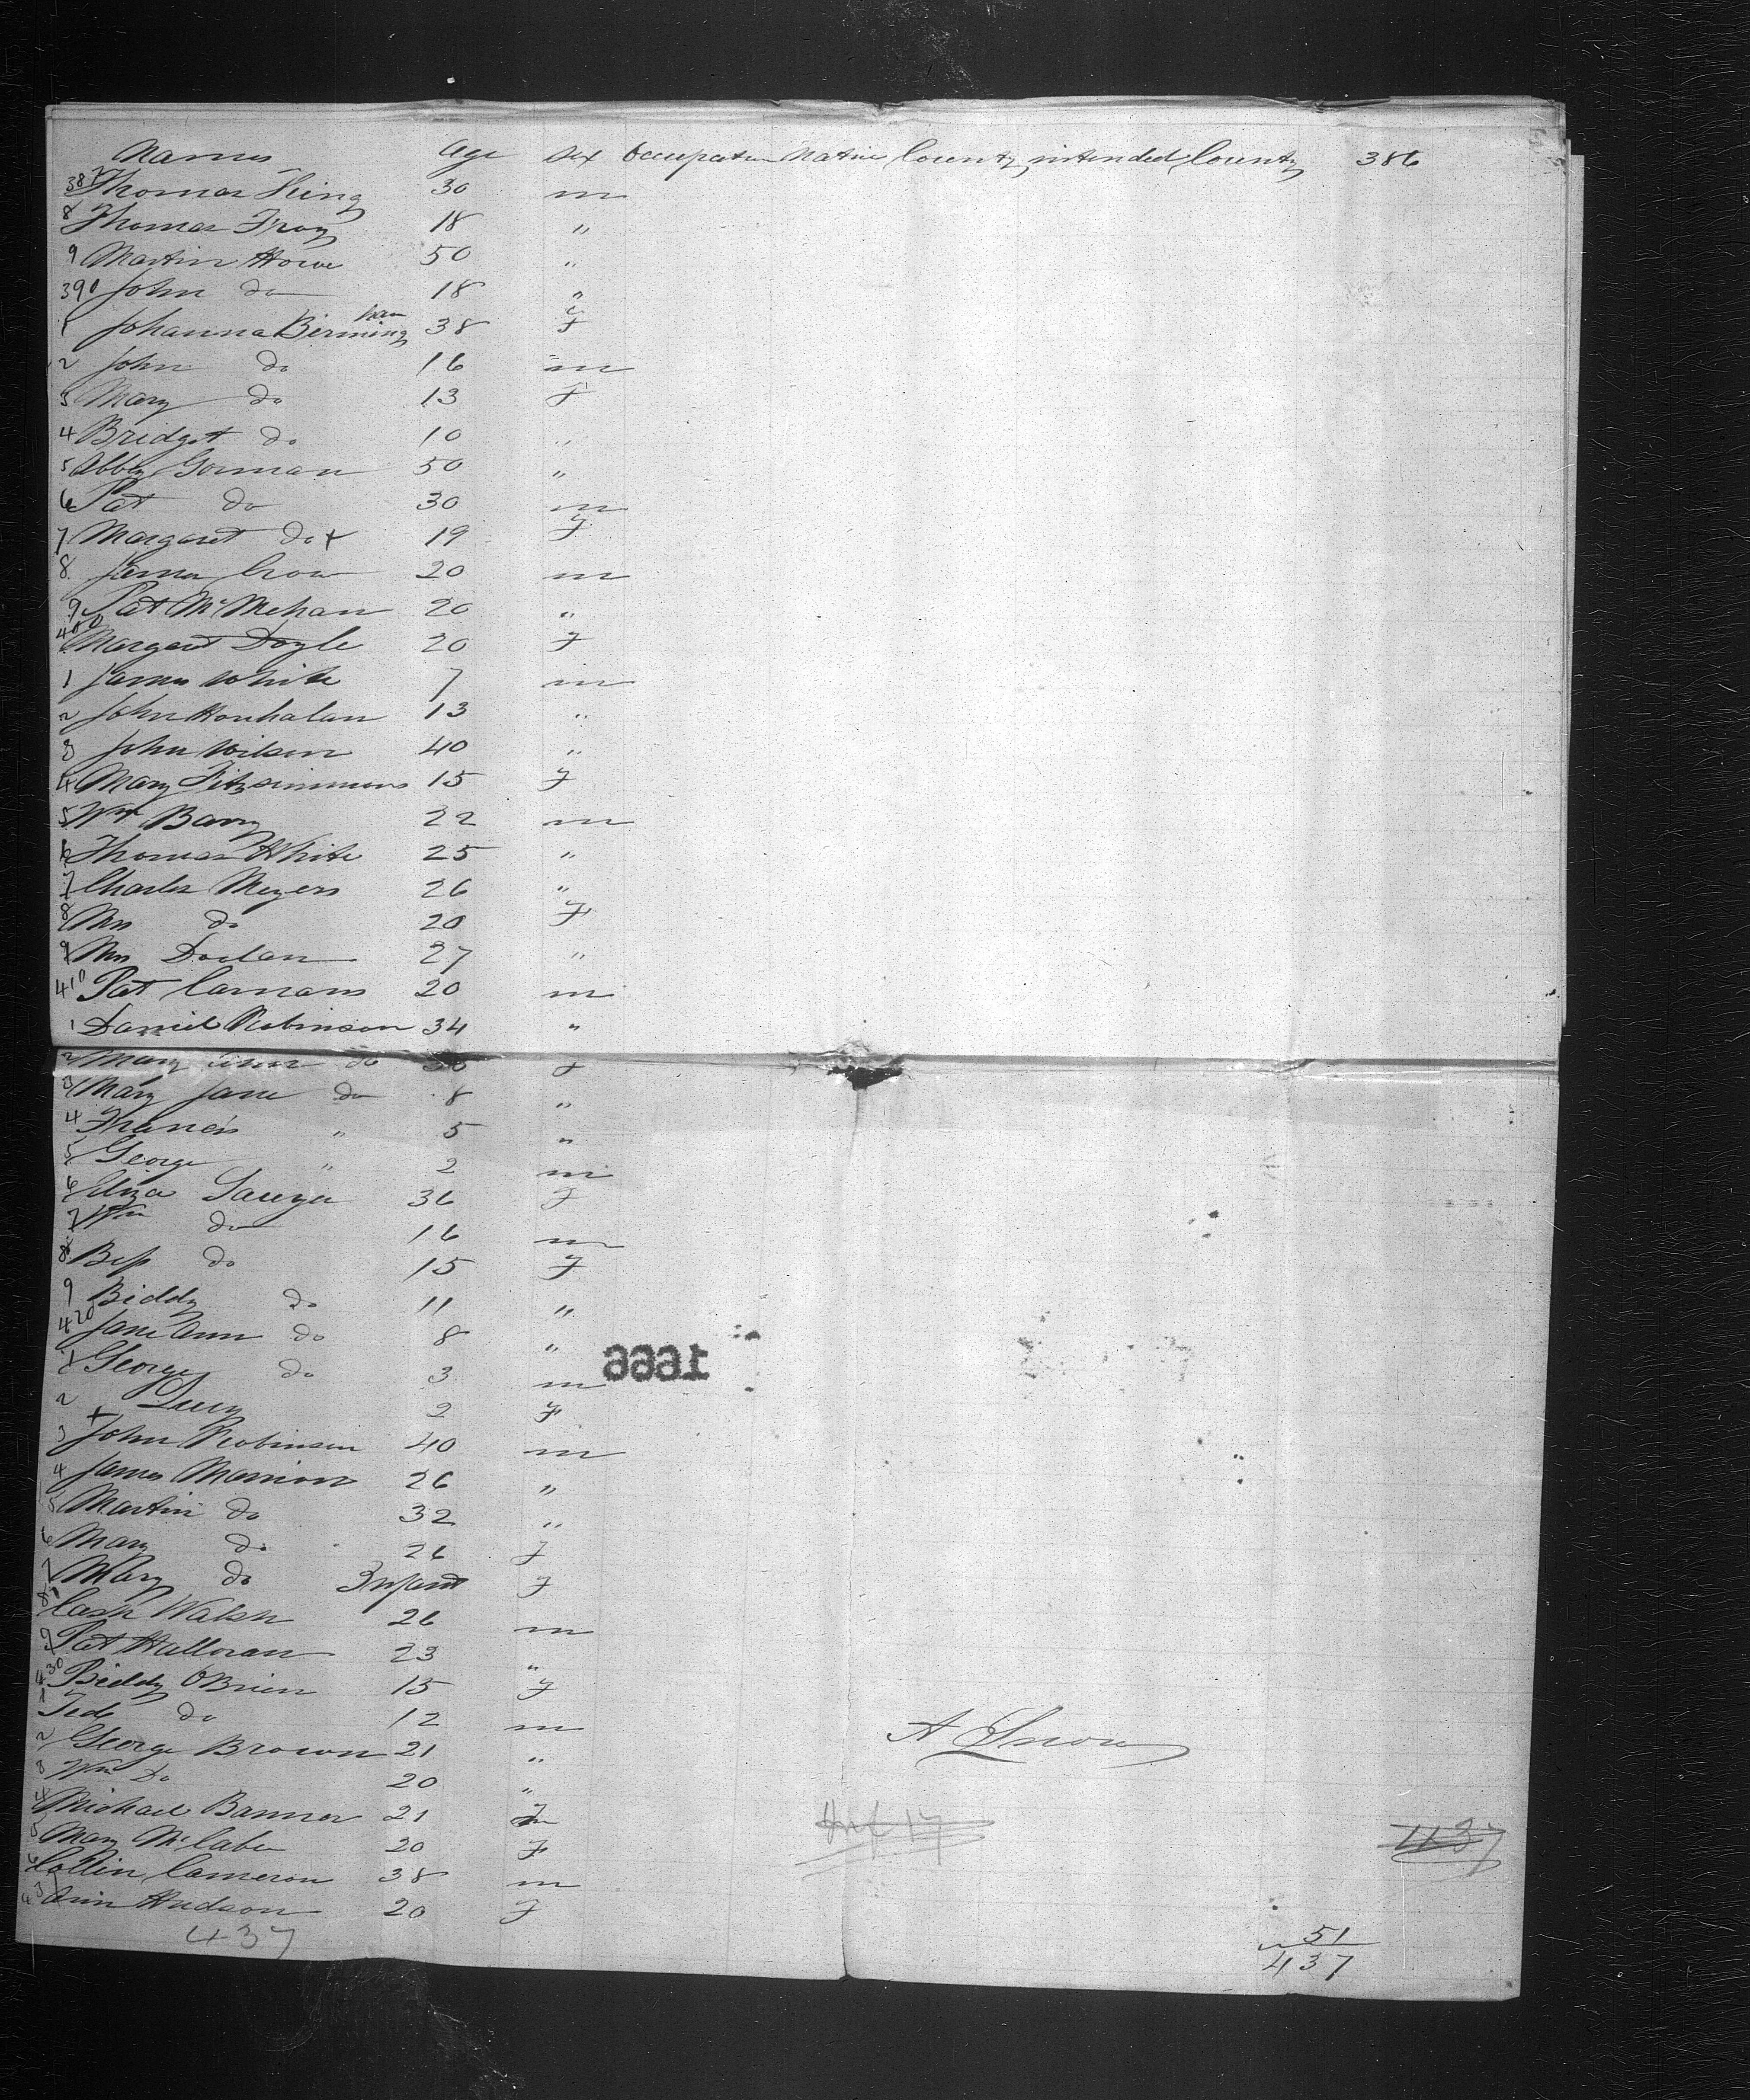 Names Age Sex Occupation Native County intended County 386
387 Thomas King 30 m
8 Thomas Troy 18 "
9 Martin Howe 50 "
390 John do 18 "
1 Johanna Birmingham 38 F
2 John do 16 m
3 Mary do 13 F
4 Bridget do 10 "
5 Abby Gorman 50 "
6 Pat do 30 m
7 Margaret do + 19 F
8 James Crow 20 m
9 Pat McMehan 20 "
400 Margaret Doyle 20 F
1 James White 7 m
2 John Houhalan 13 "
3 John Wilson 40 "
4 Mary Fitzsimmons 15 F
5 Wm Barry 22 m
6 Thomas White 25 "
7 Charles Meyers 26 "
8 Mrs do 20 F
9 Mrs Dodan 27 "
410 Pat 20 m
1 Daniel Robinson 34 "
2 Mary do F
3 Mary Jane do 8 "
4 Francis " 5 "
5 George " 2 m
6 Eliza 36 F
7 Wm do 16 m
8 Bess do 15 F
9 Biddy do 11 "
420 Jane Ann do 8 "
1 George do 3 m
2 + Lucy 2 F
3 John Robinson 40 m
4 James Marrion 26 "
5 Martin do 32 "
6 Mary do 26 F
7 Mary do Infant F
8 Cash Walsh 26 m
9 Pat Halloran 23 "
430 Biddy OBrien 15 F
1 Tede do 12 m
2 George Brown 21 "
3 Wm Do 20 "
4 Michael Banner 21 m
5 Mary McCabe 20 F
6 Collin Cameron 38 m
437 Ann Hudson 20 F
437
1666
A Snow
437
51
437